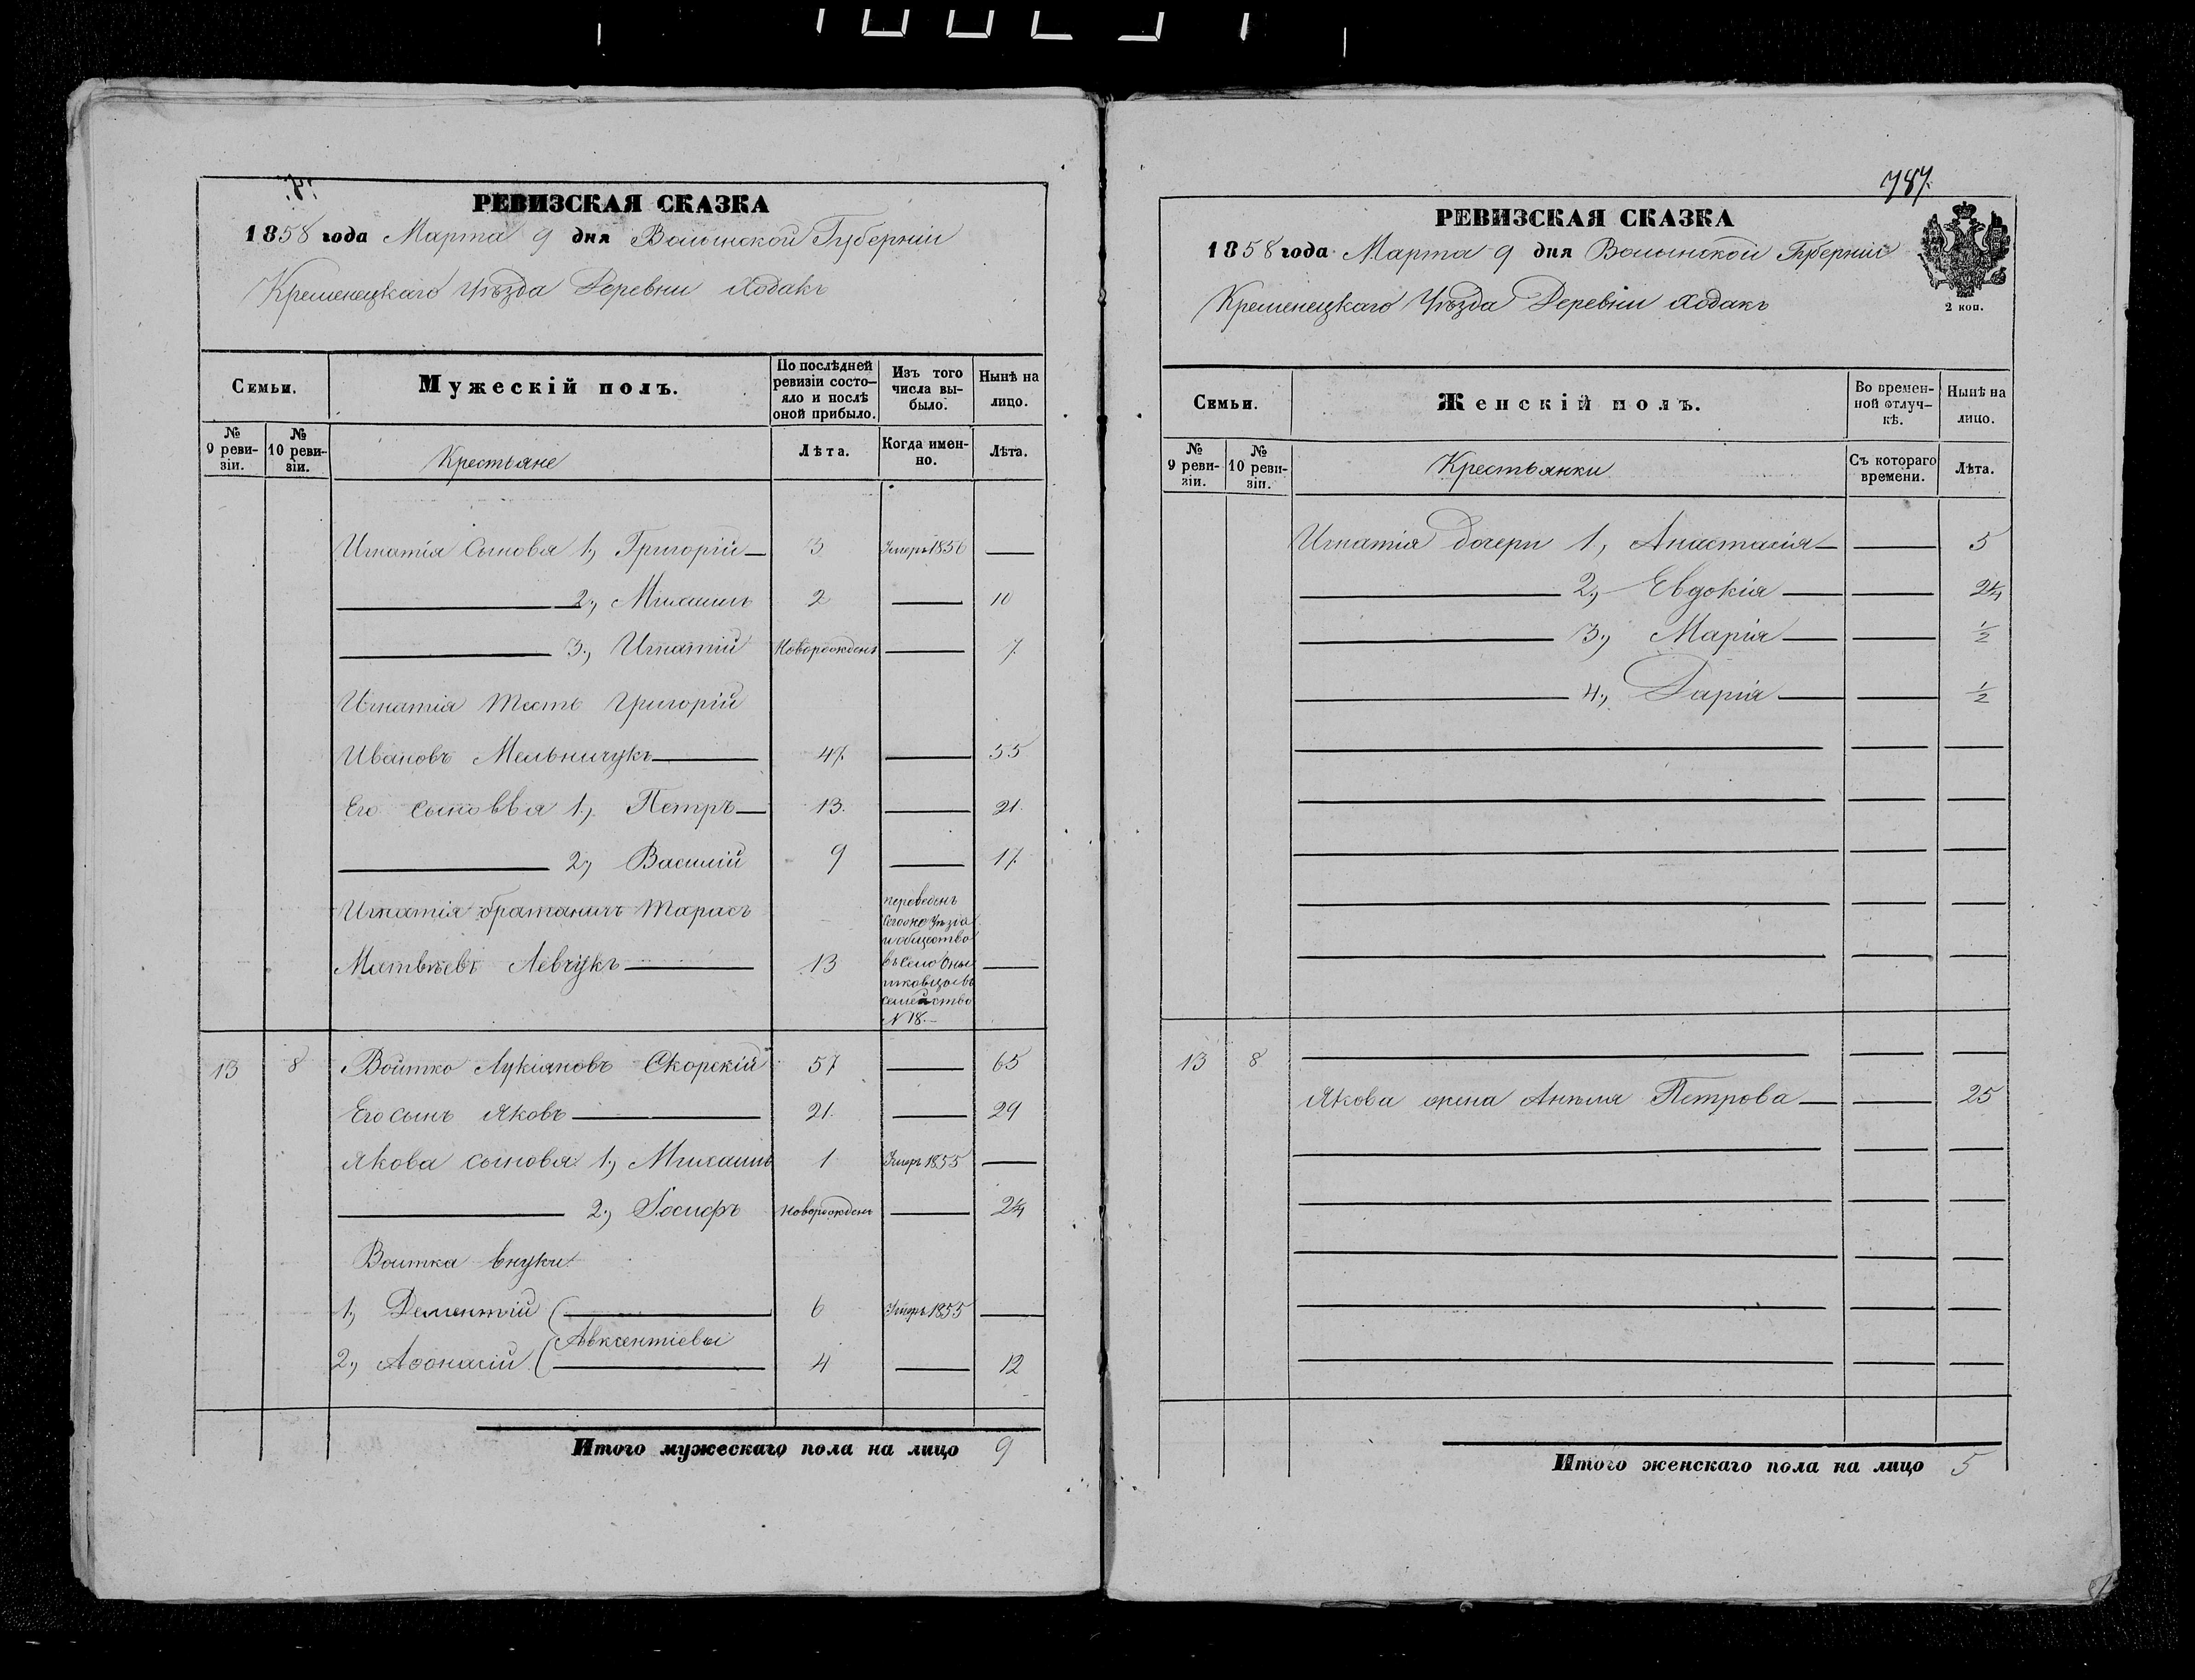 РЕВИЗСКАЯ СКАЗКА
1858 года Марта 9 дня Волынской Губерніи
Кременецкаго Уѣзда Деревни Ходакъ
Семьи.
Мужескій полъ.
По послѣдней ревизіи состо-яло и послѣ оной прибыло.
Изъ того числа вы-было.
Нынѣ на лицо.
№ 9 реви-зіи.
№ 10 реви-зіи.
Крестьяне
Лѣта.
Когда имен-но.
Лѣта.
Игнатія Сыновья 1, Григорій 3 Умеръ 1856
2, Михаилъ 2 10
3, Игнатій Новорожденъ 7
Игнатія тесть Григорій
Ивановъ Мельничукъ 47 55
Его сыновья 1, Петръ 13 21
2, Василій 9 17
Игнатія братаничъ Тарасъ
Матвѣевъ Левчукъ 13
переведенъ
Уѣзда
и общество
въ село
семейство
№ 18.
13 8 Войтко Лукіяновъ Скорскій 57 65
Его сынъ Яковъ 21 29
Якова сыновья 1, Михаилъ 1 Умеръ 1855
2, Іосифъ новорожденъ 2¼
Войтка внуки
1, Дементій 6 Умеръ 1855
Авксентіевы
2, Афонасій 4 12
Итого мужескаго пола на лицо 9
787.
РЕВИЗСКАЯ СКАЗКА
1858 года Марта 9 дня Волынской Губерніи
Кременецкаго Уѣзда Деревни Ходакъ
2 коп.
Семьи.
Женскій полъ.
Во времен-ной отлуч-кѣ.
Нынѣ на лицо.
№ 9 реви-зіи.
№ 10 реви-зіи.
Крестьянки
Съ котораго времени.
Лѣта.
Игнатія дочери 1, Анастасія 5
2, Евдокія 2¼
3, Марія ½
4, Дарія ½
13 8
Якова жена Анѣля Петрова 25
Итого женскаго пола на лицо 5